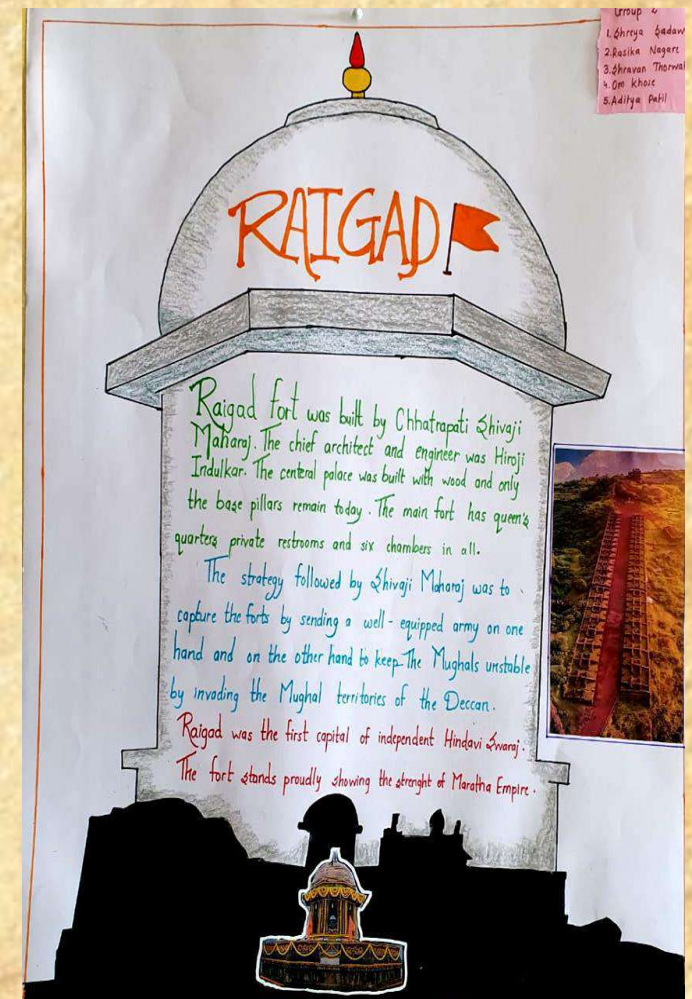 Group 2
1. Shreya Gadaw
2. Rasika Nagare
3. Shravan Thorwat
4. Om Khose
5. Aditya Patil
RAIGAD
Raigad fort was built by Chhatrapati Shivaji
Maharaj. The chief architect and engineer was Hiroji
Indulkar. The central palace was built with wood and only
the base pillars remain today. The main fort has queen's
quarters private restrooms and six chambers in all.
The strategy followed by Shivaji Maharaj was to
capture the forts by sending a well-equipped army on one
hand and on the other hand to keep The Mughals unstable
by invading the Mughal territories of the Deccan.
Raigad was the first capital of independent Hindavi Swaraj.
The fort stands proudly showing the strenght of Maratha Empire.